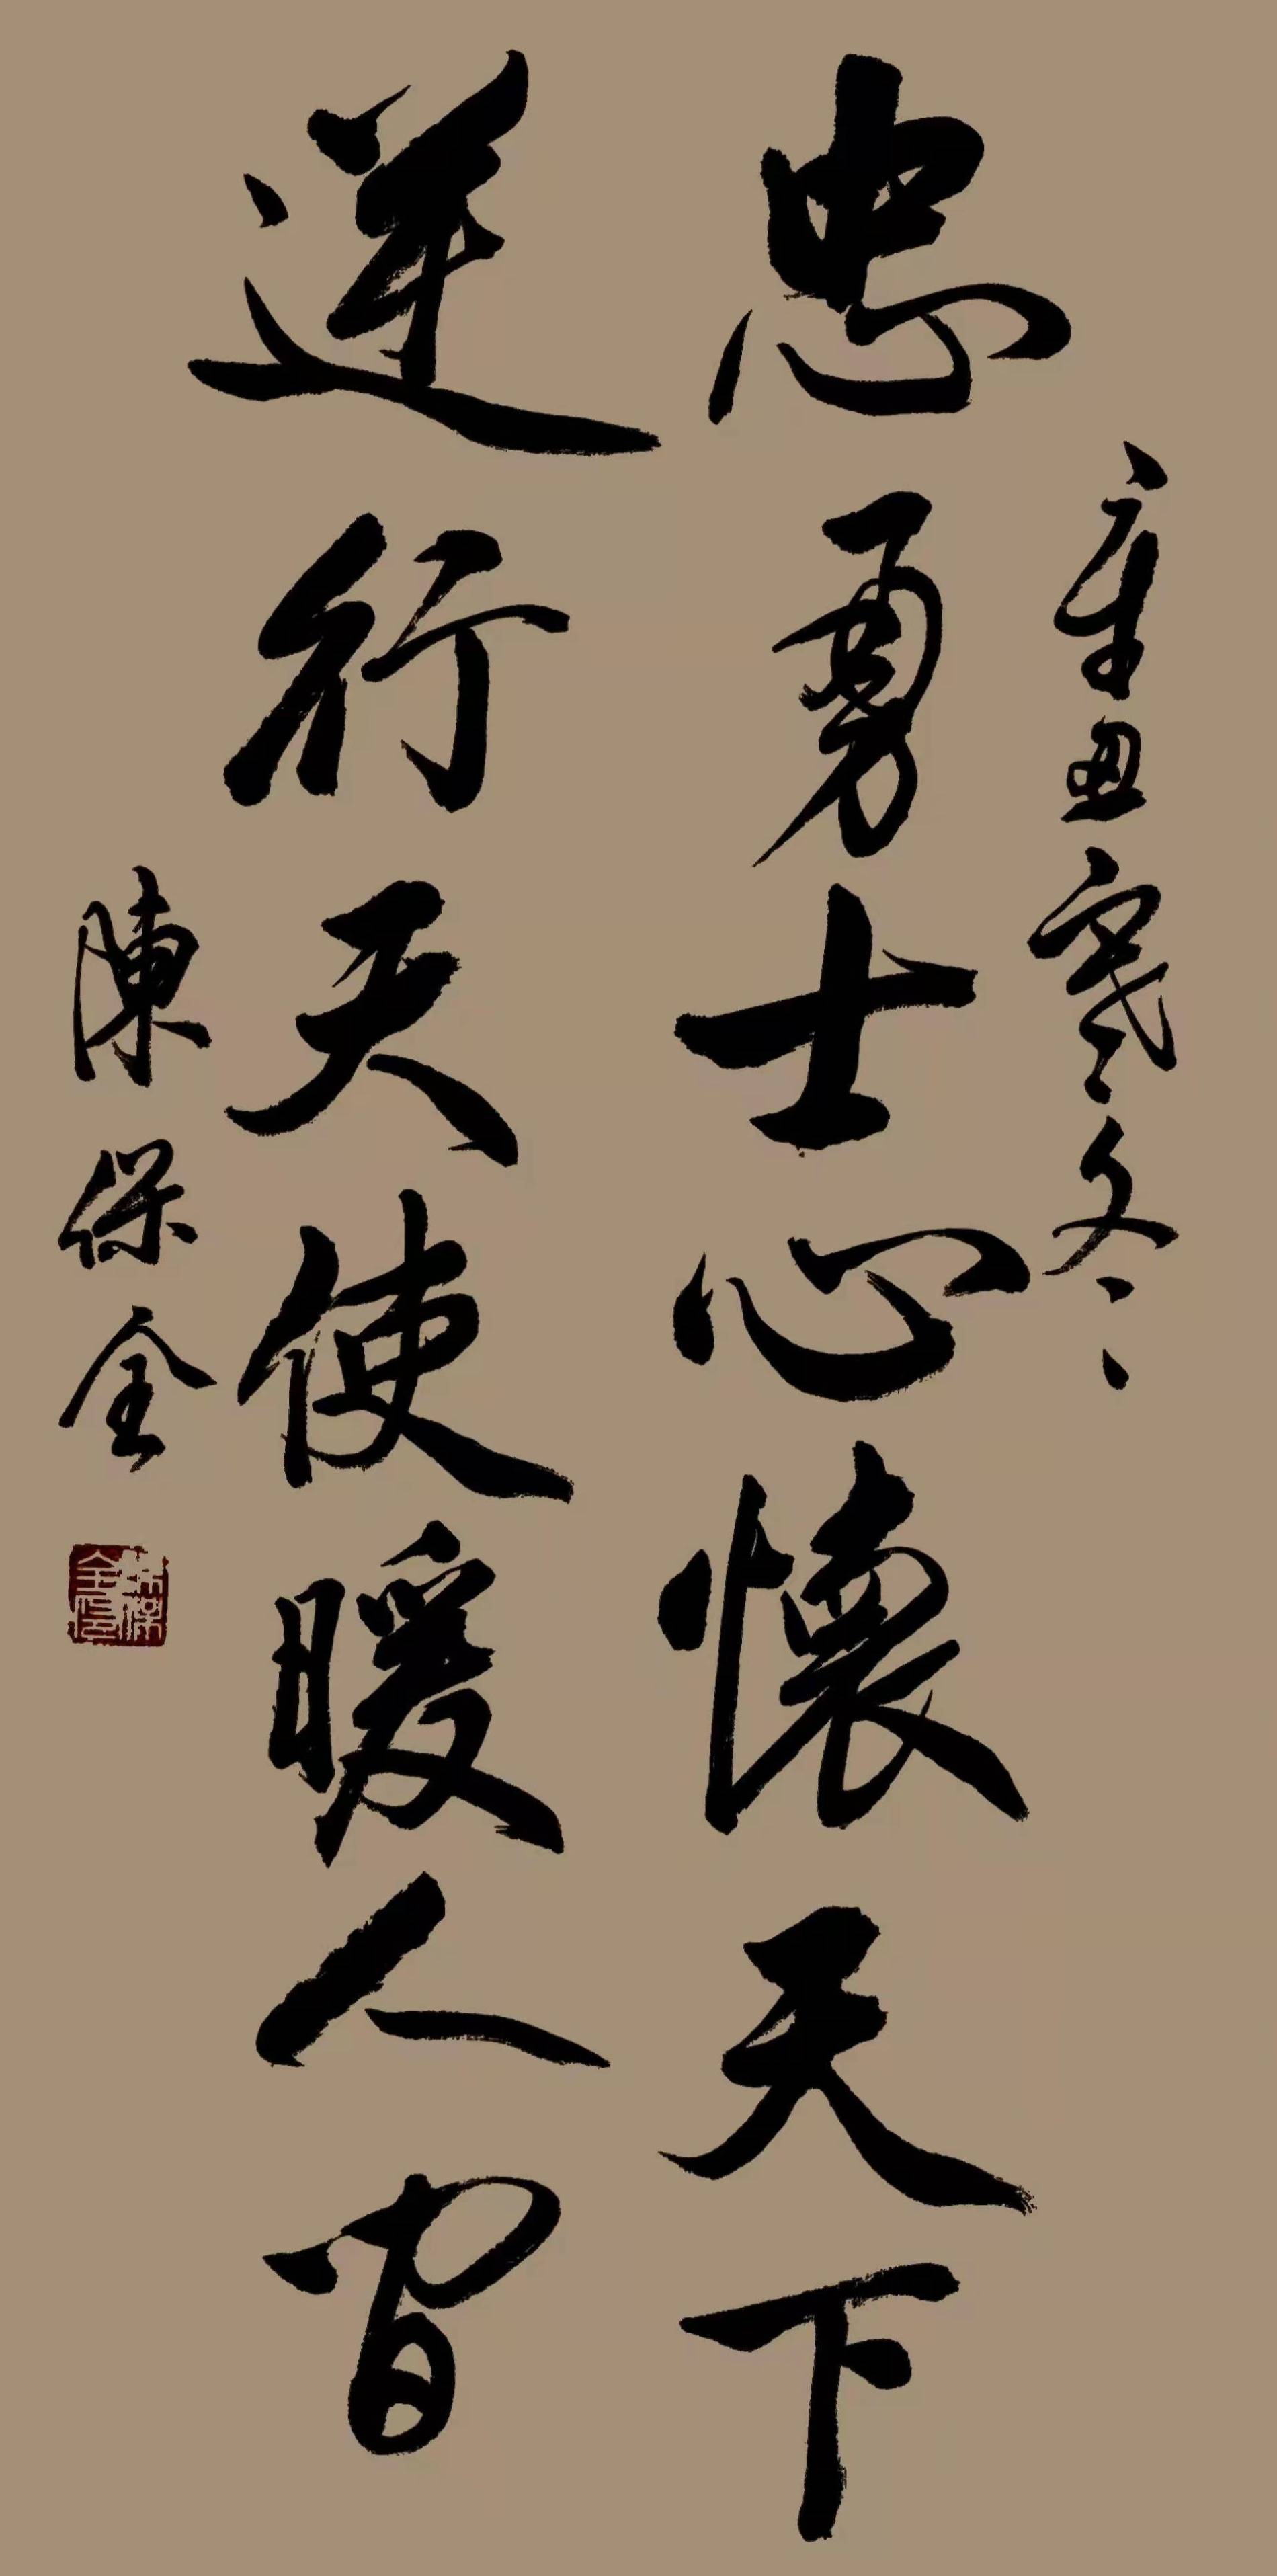 辛丑寒冬
忠勇士心懷天下
逆行天使暖人间
陳保全
陈保全印